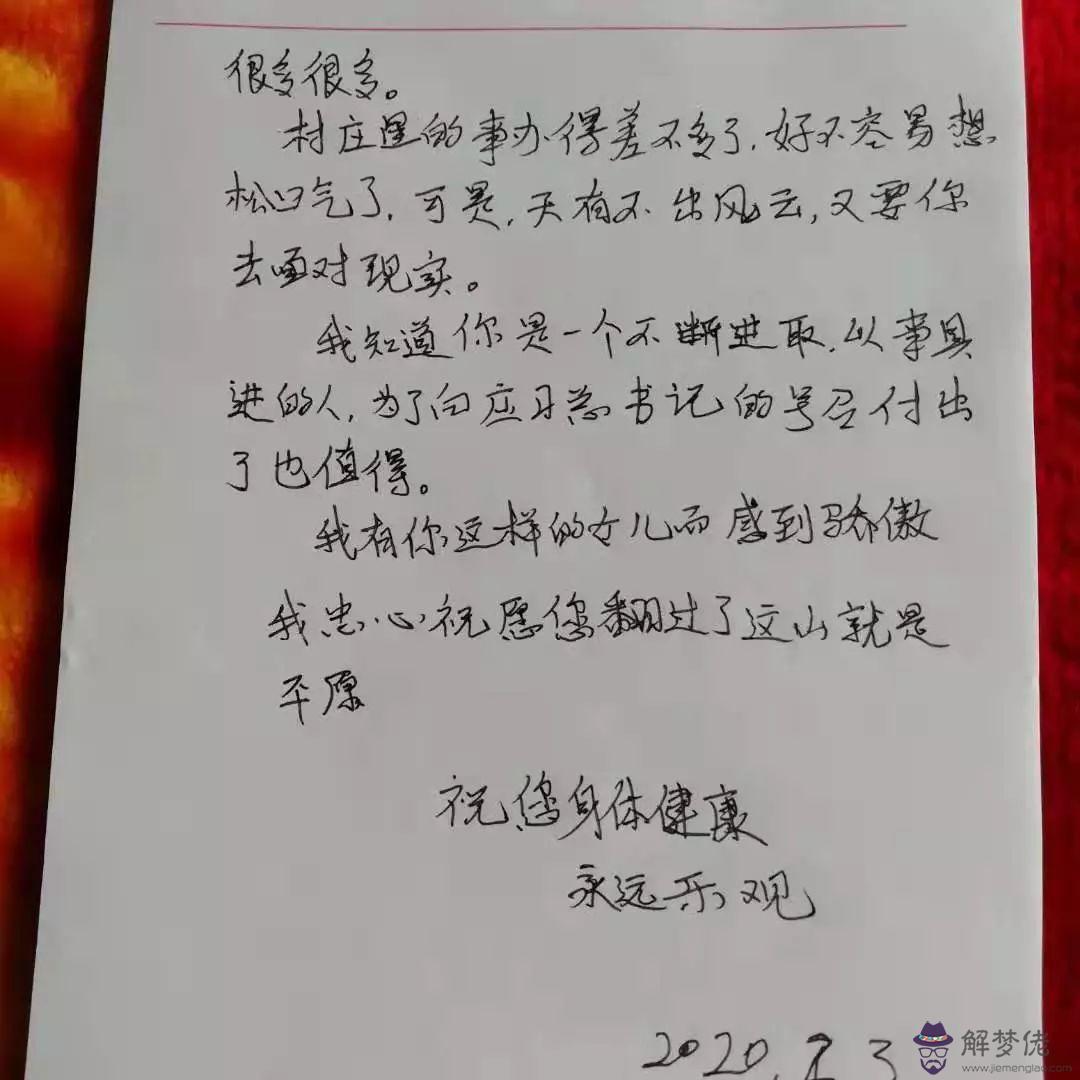 很多很多。
村庄里的事办得差不多了，好不容易想
松口气了，可是，天有不出风云，又要你
去面对现实。
我知道你是一个不断进取，以事具
进的人，为了向应习总书记的号召付出
了也值得。
我有你这样的女儿而感到骄傲
我忠心祝愿您翻过了这山就是
平愿
祝您身体健康
永远乐观
2020.2.3
解梦佬
www.jiemenglao.com